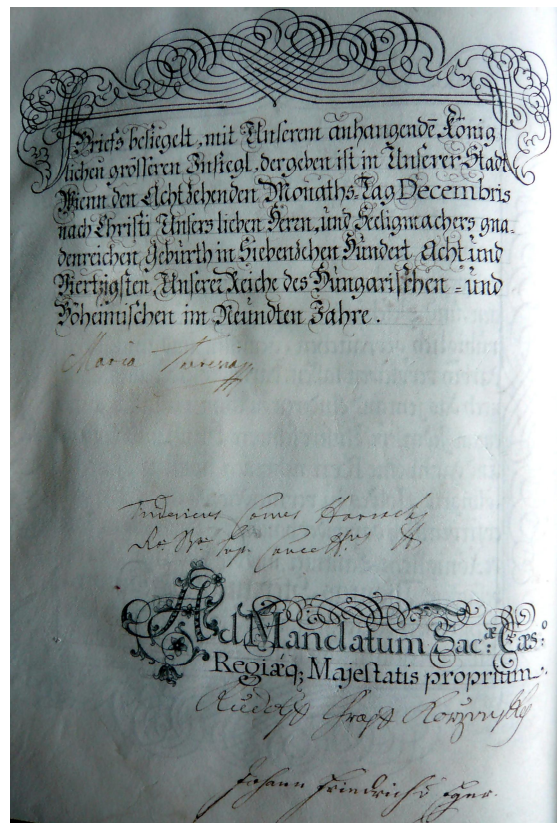 Briefs besiegelt, mit Unserem anhangendē König
lichen grösseren Insiegl, der geben ist in Unserer Stadt
Wienn den Achtzehenden Monaths-Tag Decembris
nach Christi Unsers lieben Herrn, und Seeligmachers gna-
denreichen Geburth in Siebenzehen Hundert Acht und
Viertzigsten Unserer Reiche des Hungarischen- und
Böheimischen im Neundten Jahre.
Maria Theresia
Fridericus Comes Harrach
Ad Mandatum Sac.æ Cæs.o
Regiæq; Majestatis proprium.
Rudolph Graff Korzensky
Johann Friedrich v Eger.